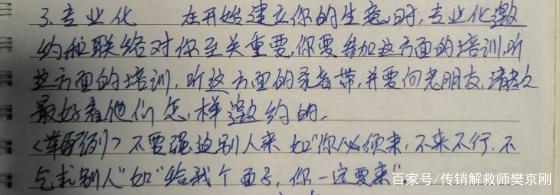 3.专业化 在开始建立你的生意时,专业化邀
约和联络对你至关重要,你要参加这方面的培训,听
这方面的培训,听这方面的录音带,并要向老朋友,请教
最好看他们怎,样邀约的,
不要强迫别人来 如“你必须来,不来不行,不
乞求别人”如“给我个面子,你一定要来”
百家号/传销解救师樊京刚